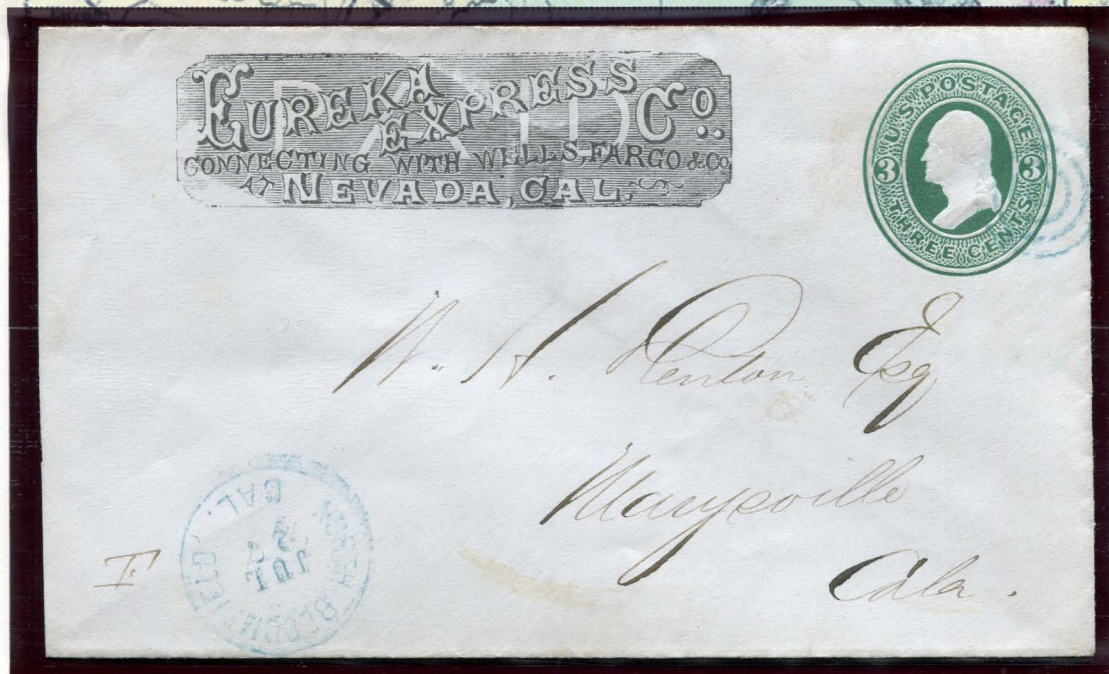 EUREKA
EXPRESS Co.
PAID
CONNECTING WITH WELLS, FARGO & Co
AT NEVADA, CAL.
U.S. POSTAGE
3 3
THREE CENTS
W. A. Kenton Esq
Marysville
Cala.
NORTH BLOOMFIELD CAL.
JUL
27